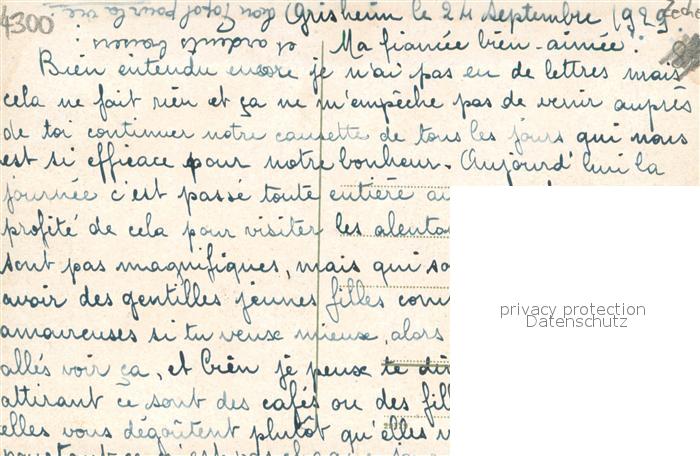 4300
Griesheim le 24 septembre 1929
Ma fiancée bien-aimée !
et ardents baisers
ton Totol pour la vie
Bien entendu encore je n'ai pas eu de lettres mais
cela ne fait rien et ça ne m'empêche pas de venir auprès
de toi continuer notre causette de tous les jours qui nous
est si efficace pour notre bonheur. Aujourd'hui la
journée c'est passé toute entière au
profité de cela pour visiter les alento
sont pas magnifiques, mais qui so
avoir des gentilles jeunes filles com
amoureuses si tu veux mieux, alors
allés voir ça, et bien je peux te di
attirant ce sont des cafés ou des fill
elles vous dégoûtent plutôt qu'elles v
privacy protection
Datenschutz